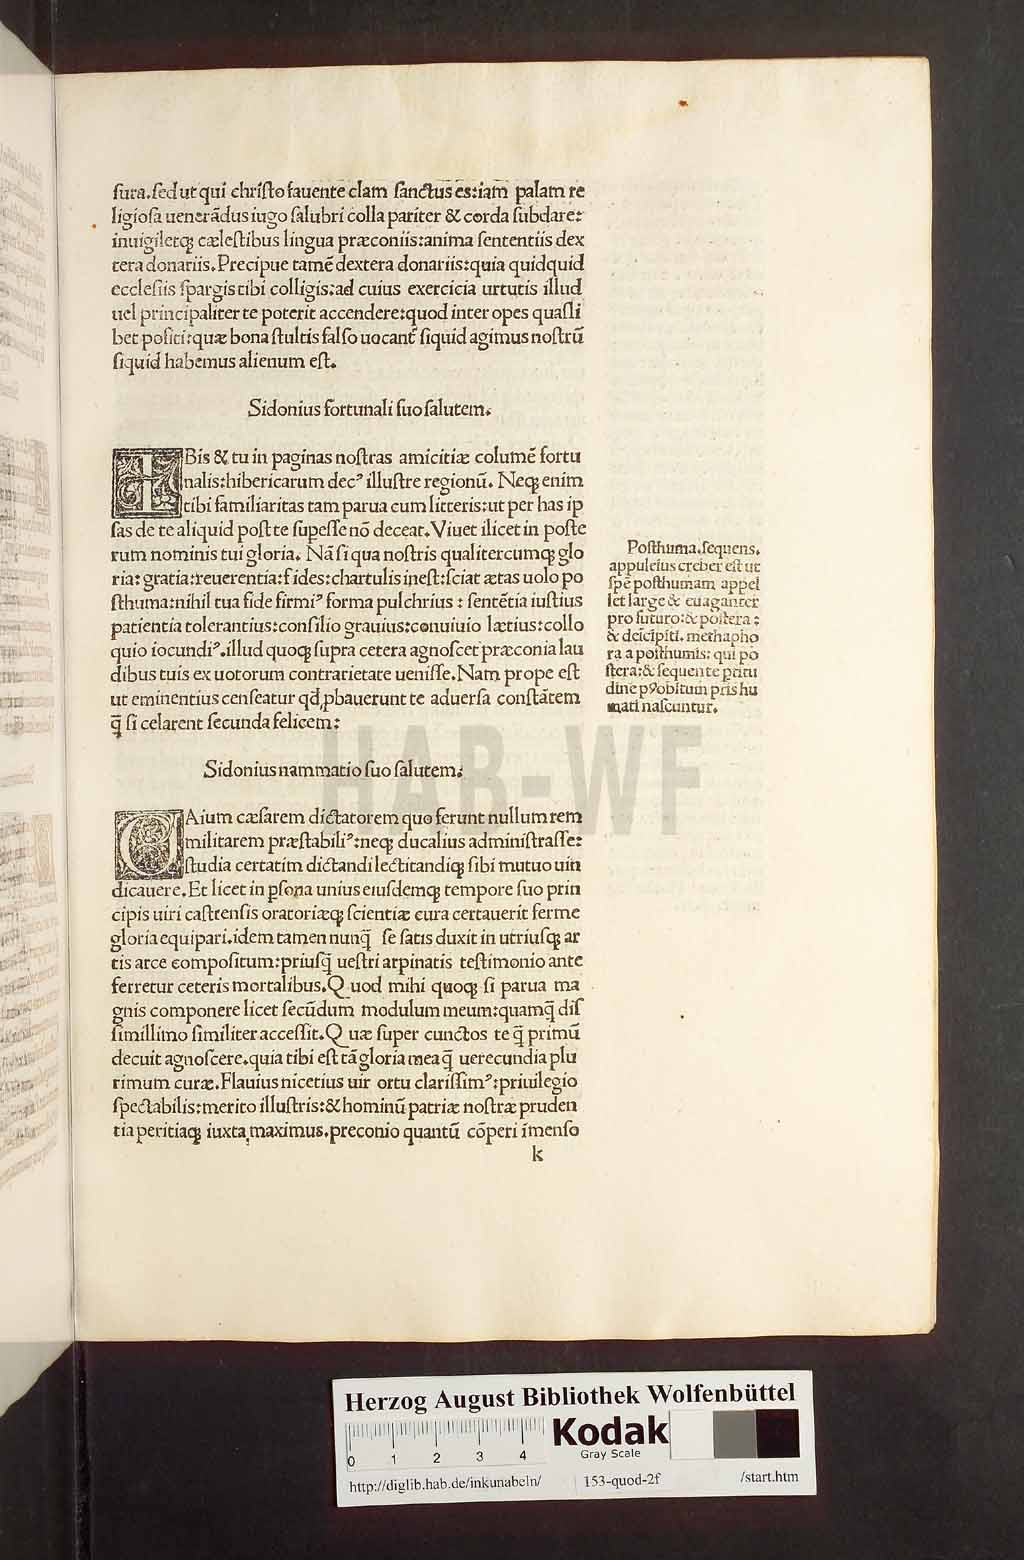 sura.sed ut qui christo fauente clam sanctus es:iam palam re
ligiosa uenerādus iugo salubri colla pariter & corda subdare:
inuigiletqꝫ cælestibus lingua præconiis:anima sententiis dex
tera donariis.Precipue tamē dextera donariis:quia quidquid
ecclesiis spargis tibi colligis:ad cuius exercicia urtutis illud
uel principaliter te poterit accendere:quod inter opes quasli
bet positi:quæ bona stultis falso uocant̄ siquid agimus nostrū
siquid habemus alienum est.
Sidonius fortunali suo salutem.
IBis & tu in paginas nostras amicitiæ columē fortu
nalis:hibericarum decꝰ illustre regionū. Neqꝫ enim
tibi familiaritas tam parua cum litteris:ut per has ip
sas de te aliquid post te supesse nō deceat.Viuet ilicet in poste
rum nominis tui gloria. Nā si qua nostris qualitercumqꝫ glo
ria:gratia:reuerentia:fides:chartulis inest:sciat ætas uolo po
sthuma:nihil tua fide firmiꝰ forma pulchrius : sentētia iustius
patientia tolerantius:consilio grauius:conuiuio lætius:collo
quio iocundiꝰ.illud quoqꝫ supra cetera agnoscet præconia lau
dibus tuis ex uotorum contrarietate uenisse.Nam prope est
ut eminentius censeatur qđ pbauerunt te aduersa constātem
q̄ si celarent secunda felicem:
Posthuma.sequens.
appuleius creber est ut
spē posthumam appel
let large & euaganter
pro futuro:& postera :
& deīcipiti. methapho
ra a posthumis: qui po
stera:& sequente pritu
dine pꝰobitum pris hu
mati nascuntur.
Sidonius nammatio suo salutem.
CAium cæsarem dictatorem quo ferunt nullum rem
militarem præstabiliꝰ:neqꝫ ducalius administrasse:
studia certatim dictandi lectitandiqꝫ sibi mutuo uin
dicauere.Et licet in psona unius eiusdemqꝫ tempore suo prin
cipis uiri castrensis oratoriæqꝫ scientiæ cura certauerit ferme
gloria equipari.idem tamen nunq̄ se satis duxit in utriusqꝫ ar
tis arce compositum:priusq̄ uestri arpinatis testimonio ante
ferretur ceteris mortalibus.Quod mihi quoqꝫ si parua ma
gnis componere licet secūdum modulum meum:quamq̄ dis
simillimo similiter accessit.Quæ super cunctos te q̄ primū
decuit agnoscere.quia tibi est tā gloria mea q̄ uerecundia plu
rimum curæ.Flauius nicetius uir ortu clarissimꝰ:priuilegio
spectabilis:merito illustris:& hominū patriæ nostræ pruden
tia peritiaqꝫ iuxta maximus.preconio quantū cōperi īmenso
k
HAB-WF
Herzog August Bibliothek Wolfenbüttel
0 1 2 3 4
Kodak
Gray Scale
http://diglib.hab.de/inkunabeln/ 153-quod-2f /start.htm